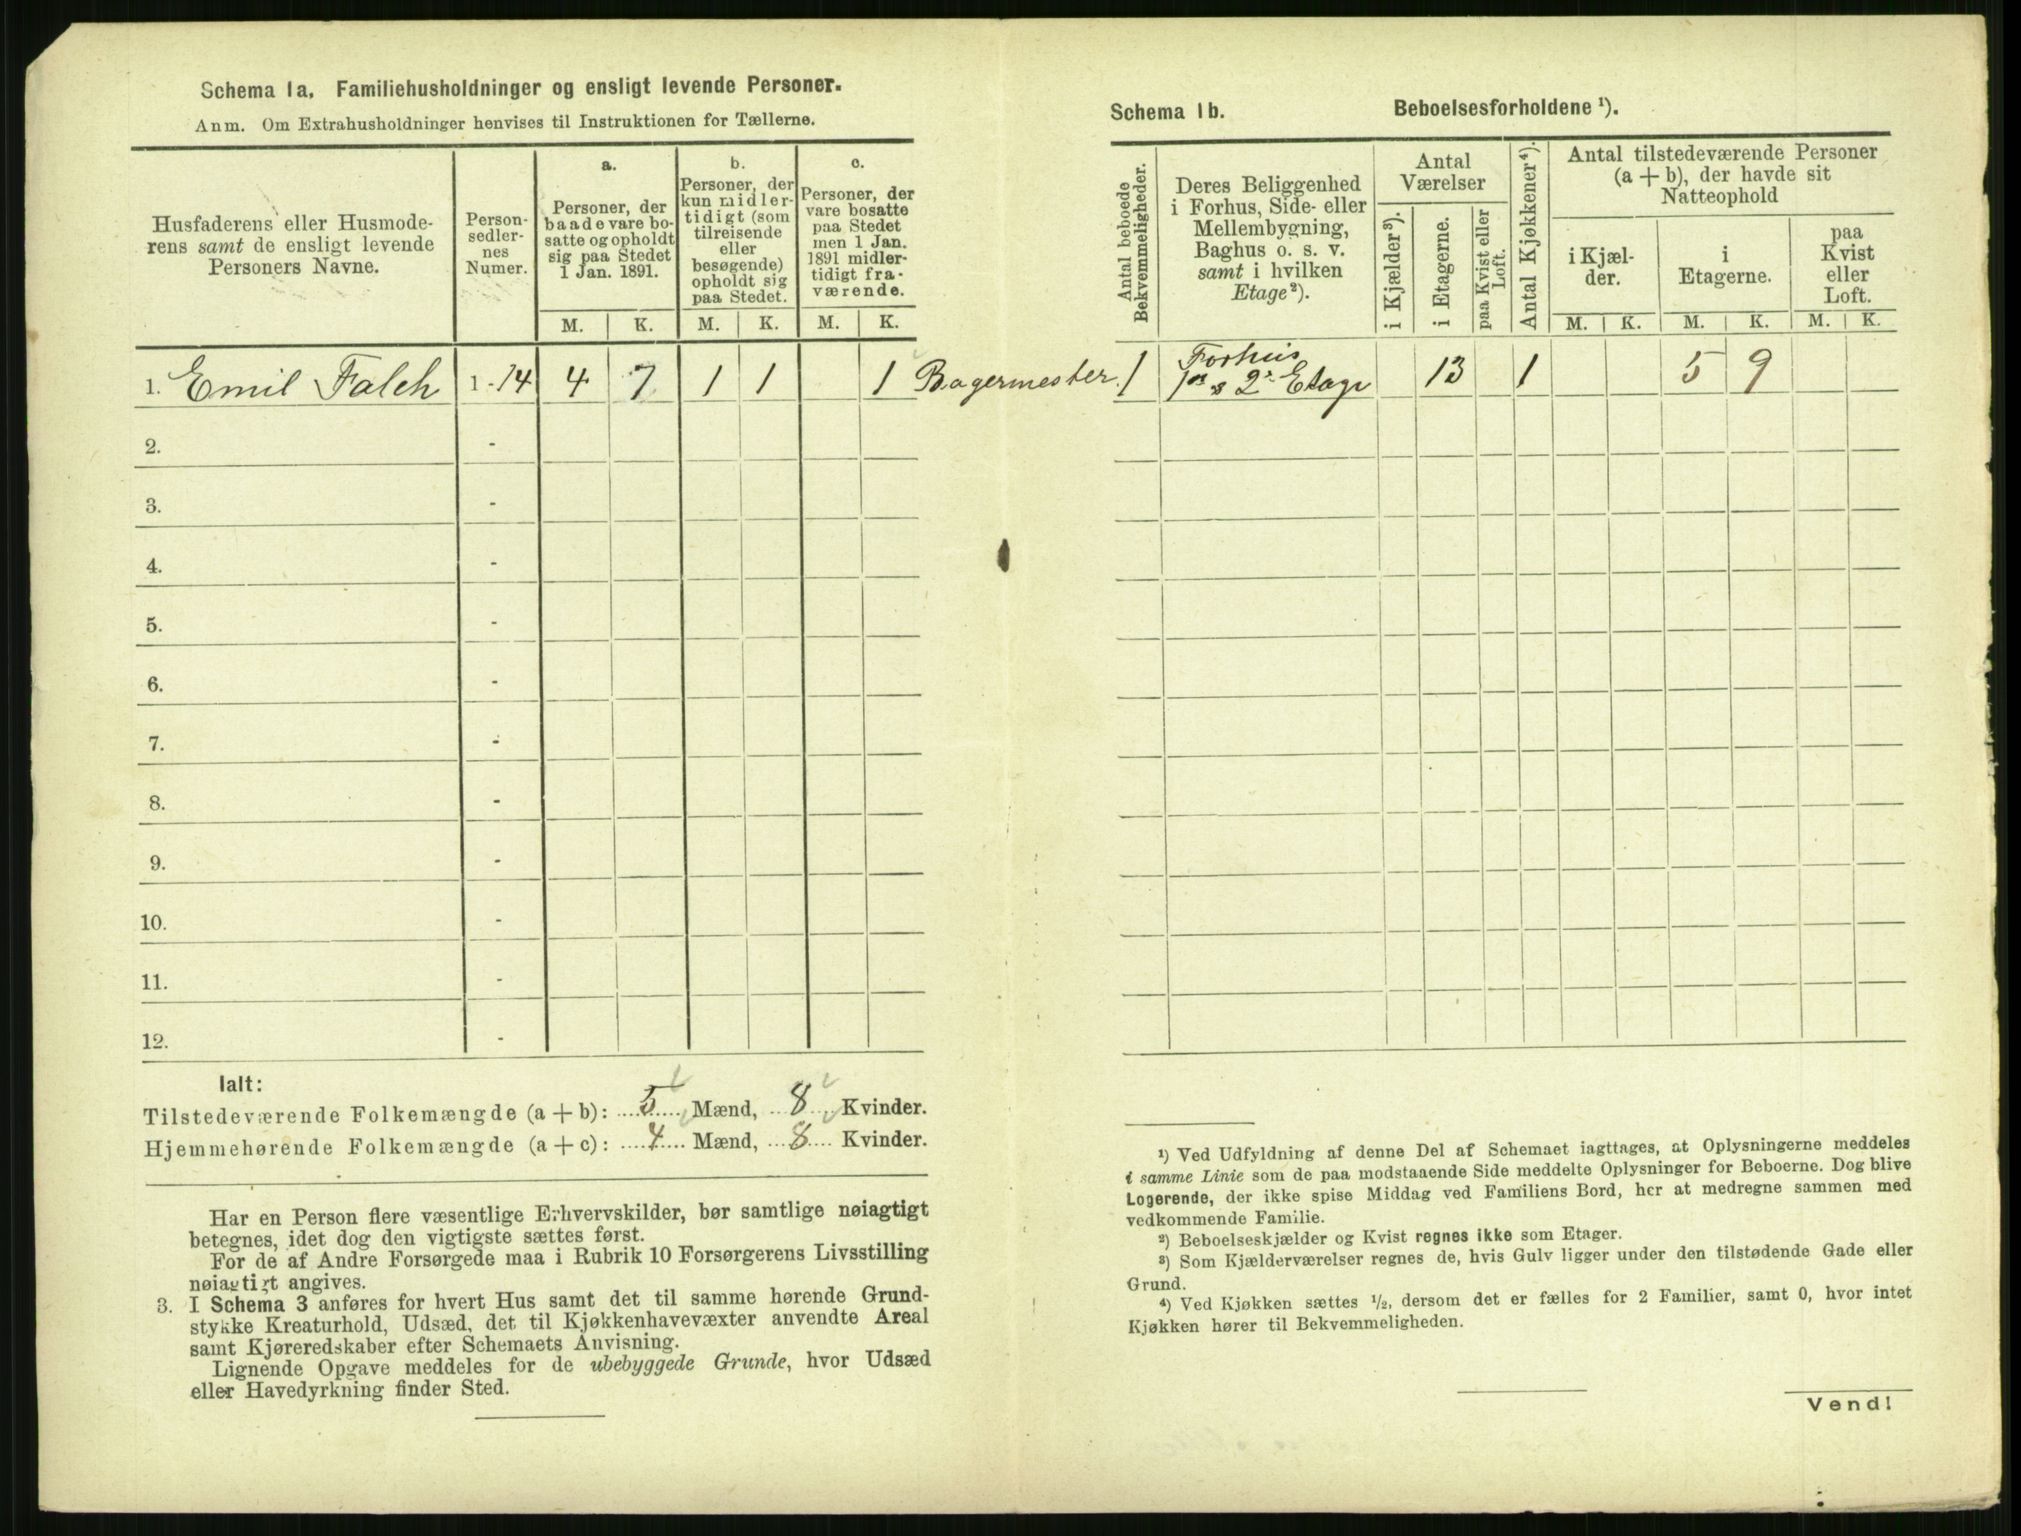 Schema 1a. Familiehusholdninger og ensligt levende Personer.
Anm. Om Extrahusholdninger henvises til Instruktionen for Tællerne.
Husfaderens eller Husmode-
rens samt de ensligt levende
Personers Navne.
Person-
sedler-
nes
Numer.
a.
Personer, der
baade vare bo-
satte og opholdt
sig paa Stedet
1 Jan. 1891.
M. K.
b.
Personer, der
kun midler-
tidigt (som
tilreisende
eller
besøgende)
opholdt sig
paa Stedet.
M. K.
c.
Personer, der
vare bosatte
paa Stedet
men 1 Jan.
1891 midler-
tidigt fra-
værende.
M. K.
1. Emil Falch 1 - 14 4 7 1 1 1 Bagermester.
2. -
3. -
4. -
5. -
6. -
7. -
8. -
9. -
10. -
11. -
12. -
Ialt:
Tilstedeværende Folkemængde (a + b): 5 Mænd, 8 Kvinder.
Hjemmehørende Folkemængde (a + c): 4 Mænd, 8 Kvinder.
Har en Person flere væsentlige Erhvervskilder, bør samtlige nøiagtigt
betegnes, idet dog den vigtigste sættes først.
For de af Andre Forsørgede maa i Rubrik 10 Forsørgerens Livsstilling
nøiagtigt angives.
3. I Schema 3 anføres for hvert Hus samt det til samme hørende Grund-
stykke Kreaturhold, Udsæd, det til Kjøkkenhavevæxter anvendte Areal
samt Kjøreredskaber efter Schemaets Anvisning.
Lignende Opgave meddeles for de ubebyggede Grunde, hvor Udsæd
eller Havedyrkning finder Sted.
Schema 1b. Beboelsesforholdene ¹).
Antal beboede
Bekvemmeligheder.
Deres Beliggenhed
i Forhus, Side- eller
Mellembygning,
Baghus o. s. v.
samt i hvilken
Etage²).
Antal
Værelser
i Kjælder³).
i Etagerne.
paa Kvist eller
Loft.
Antal Kjøkkener⁴).
Antal tilstedeværende Personer
(a + b), der havde sit
Natteophold
i Kjæl-
der.
M. K.
i
Etagerne.
M. K.
paa
Kvist
eller
Loft.
M. K.
Forhus
1 1ste & 2. Etage 13 1 5 9
¹) Ved Udfyldning af denne Del af Schemaet iagttages, at Oplysningerne meddeles
i samme Linie som de paa modstaaende Side meddelte Oplysninger for Beboerne. Dog blive
Logerende, der ikke spise Middag ved Familiens Bord, her at medregne sammen med
vedkommende Familie.
²) Beboelseskjælder og Kvist regnes ikke som Etager.
³) Som Kjælderværelser regnes de, hvis Gulv ligger under den tilstødende Gade eller
Grund.
⁴) Ved Kjøkken sættes ½, dersom det er fælles for 2 Familier, samt 0, hvor intet
Kjøkken hører til Bekvemmeligheden.
Vend!